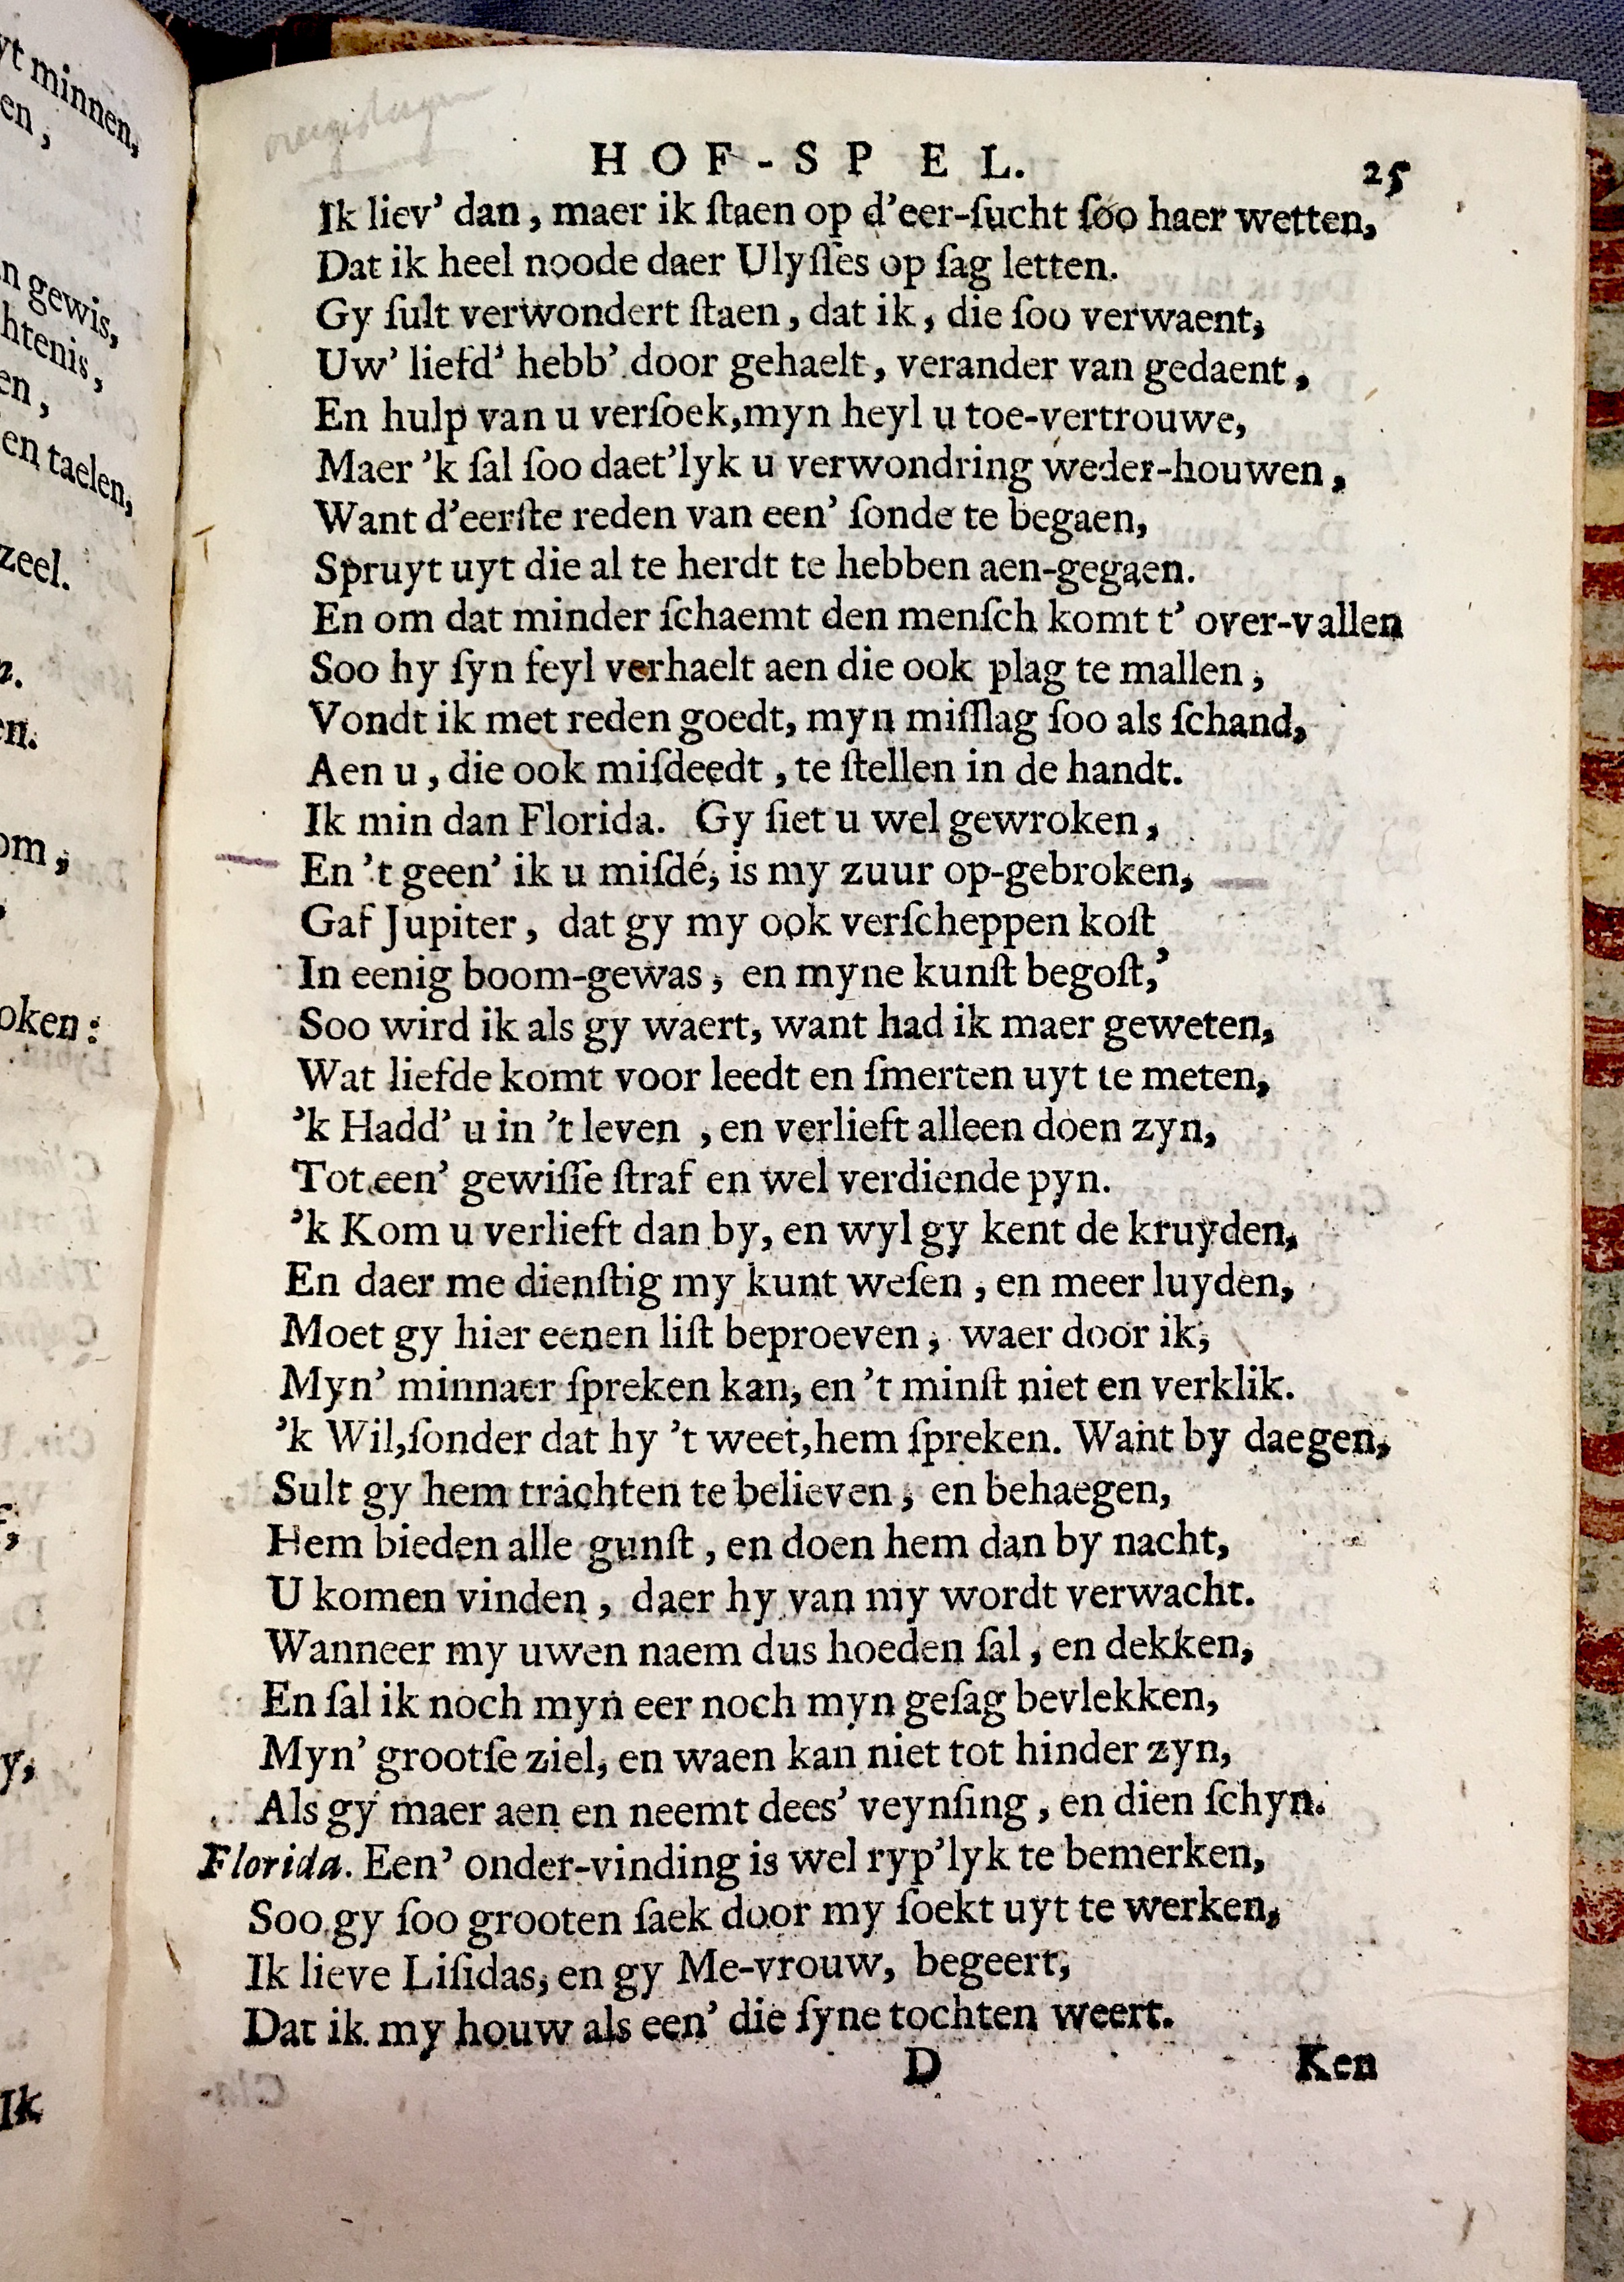 HOF-SPEL. 25
Ik liev' dan, maer ik ſtaen op d'eer-ſucht ſoo haer wetten,
Dat ik heel noode daer Ulyſſes op ſag letten.
Gy ſult verwondert ſtaen, dat ik, die ſoo verwaent,
Uw' liefd' hebb' door gehaelt, verander van gedaent,
En hulp van u verſoek, myn heyl u toe-vertrouwe,
Maer 'k ſal ſoo daet'lyk u verwondring weder-houwen,
Want d'eerſte reden van een' ſonde te begaen,
Spruyt uyt die al te herdt te hebben aen-gegaen.
En om dat minder ſchaemt den menſch komt t' over-vallen
Soo hy ſyn feyl verhaelt aen die ook plag te mallen,
Vondt ik met reden goedt, myn miſſlag ſoo als ſchand,
Aen u, die ook miſdeedt, te ſtellen in de handt.
Ik min dan Florida. Gy ſiet u wel gewroken,
En 't geen' ik u miſdé, is my zuur op-gebroken,
Gaf Jupiter, dat gy my ook verſcheppen koſt
In eenig boom-gewas, en myne kunſt begoſt,
Soo wird ik als gy waert, want had ik maer geweten,
Wat liefde komt voor leedt en ſmerten uyt te meten,
'k Hadd' u in 't leven, en verlieft alleen doen zyn,
Tot een' gewiſſe ſtraf en wel verdiende pyn.
'k Kom u verlieft dan by, en wyl gy kent de kruyden,
En daer me dienſtig my kunt weſen, en meer luyden,
Moet gy hier eenen liſt beproeven, waer door ik,
Myn' minnaer ſpreken kan, en 't minſt niet en verklik.
'k Wil, ſonder dat hy 't weet, hem ſpreken. Want by daegen,
Sult gy hem trachten te believen, en behaegen,
Hem bieden alle gunſt, en doen hem dan by nacht,
U komen vinden, daer hy van my wordt verwacht.
Wanneer my uwen naem dus hoeden ſal, en dekken,
En ſal ik noch myn eer noch myn geſag bevlekken,
Myn' grootſe ziel, en waen kan niet tot hinder zyn,
Als gy maer aen en neemt dees' veynſing, en dien ſchyn.
Florida. Een' onder-vinding is wel ryp'lyk te bemerken,
Soo gy ſoo grooten ſaek door my ſoekt uyt te werken,
Ik lieve Liſidas, en gy Me-vrouw, begeert,
Dat ik my houw als een' die ſyne tochten weert.
D Ken